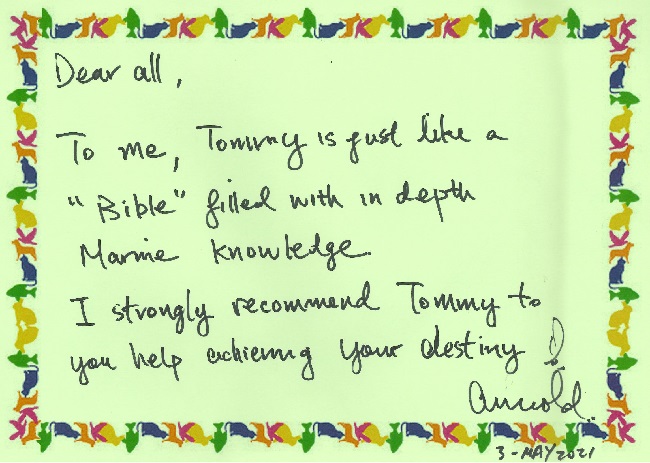 Dear all,
To me, Tommy is just like a
"Bible" filled with in depth
Marine knowledge.
I strongly recommend Tommy to
you help achieving your destiny
Arnold.
3-MAY2021